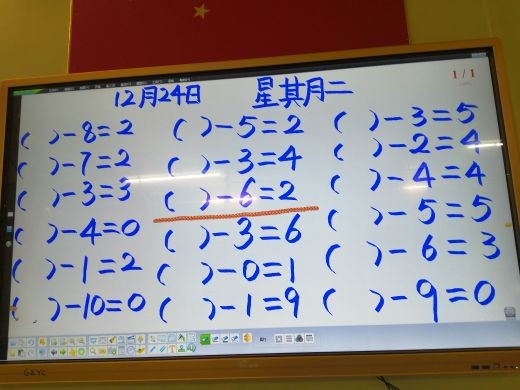 1/1
12月24日 星其月二
( )-8=2 ( )-5=2 ( )-3=5
( )-7=2 ( )-3=4 ( )-2=4
( )-3=3 ( )-6=2 ( )-4=4
( )-4=0 ( )-3=6 ( )-5=5
( )-1=2 ( )-0=1 ( )-6=3
( )-10=0 ( )-1=9 ( )-9=0
GZYC